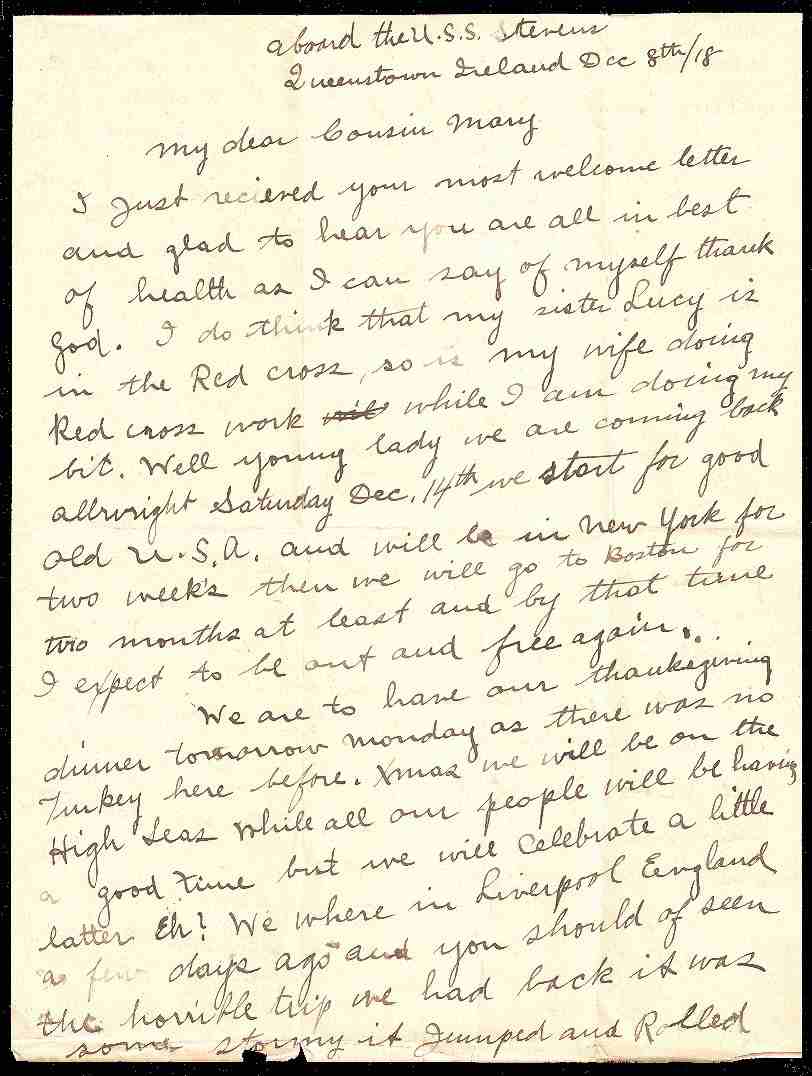 aboard the U.S.S. Stevens
Queenstown Ireland Dec 8th/18
My dear Cousin Mary
I Just recieved your most welcome letter
and glad to hear you are all in best
of health as I can say of myself thank
God. I do think that my sister Lucy is
in the Red cross, so is my wife doing
Red cross work while I am doing my
bit. Well young lady we are coming back
allwright Saturday Dec. 14th we start for good
old U.S.A. and will be in New York for
two week's then we will go to Boston for
two months at least and by that time
I expect to be out and free again...
We are to have our thanksgiving
dinner tomorrow Monday as there was no
Turkey here before. Xmas we will be on the
High Seas while all our people will be having
a good time but we will celebrate a little
latter Eh? We where in Liverpool England
a few days ago and you should of seen
the horrible trip we had back it was
some stormy it Jumped and Rolled